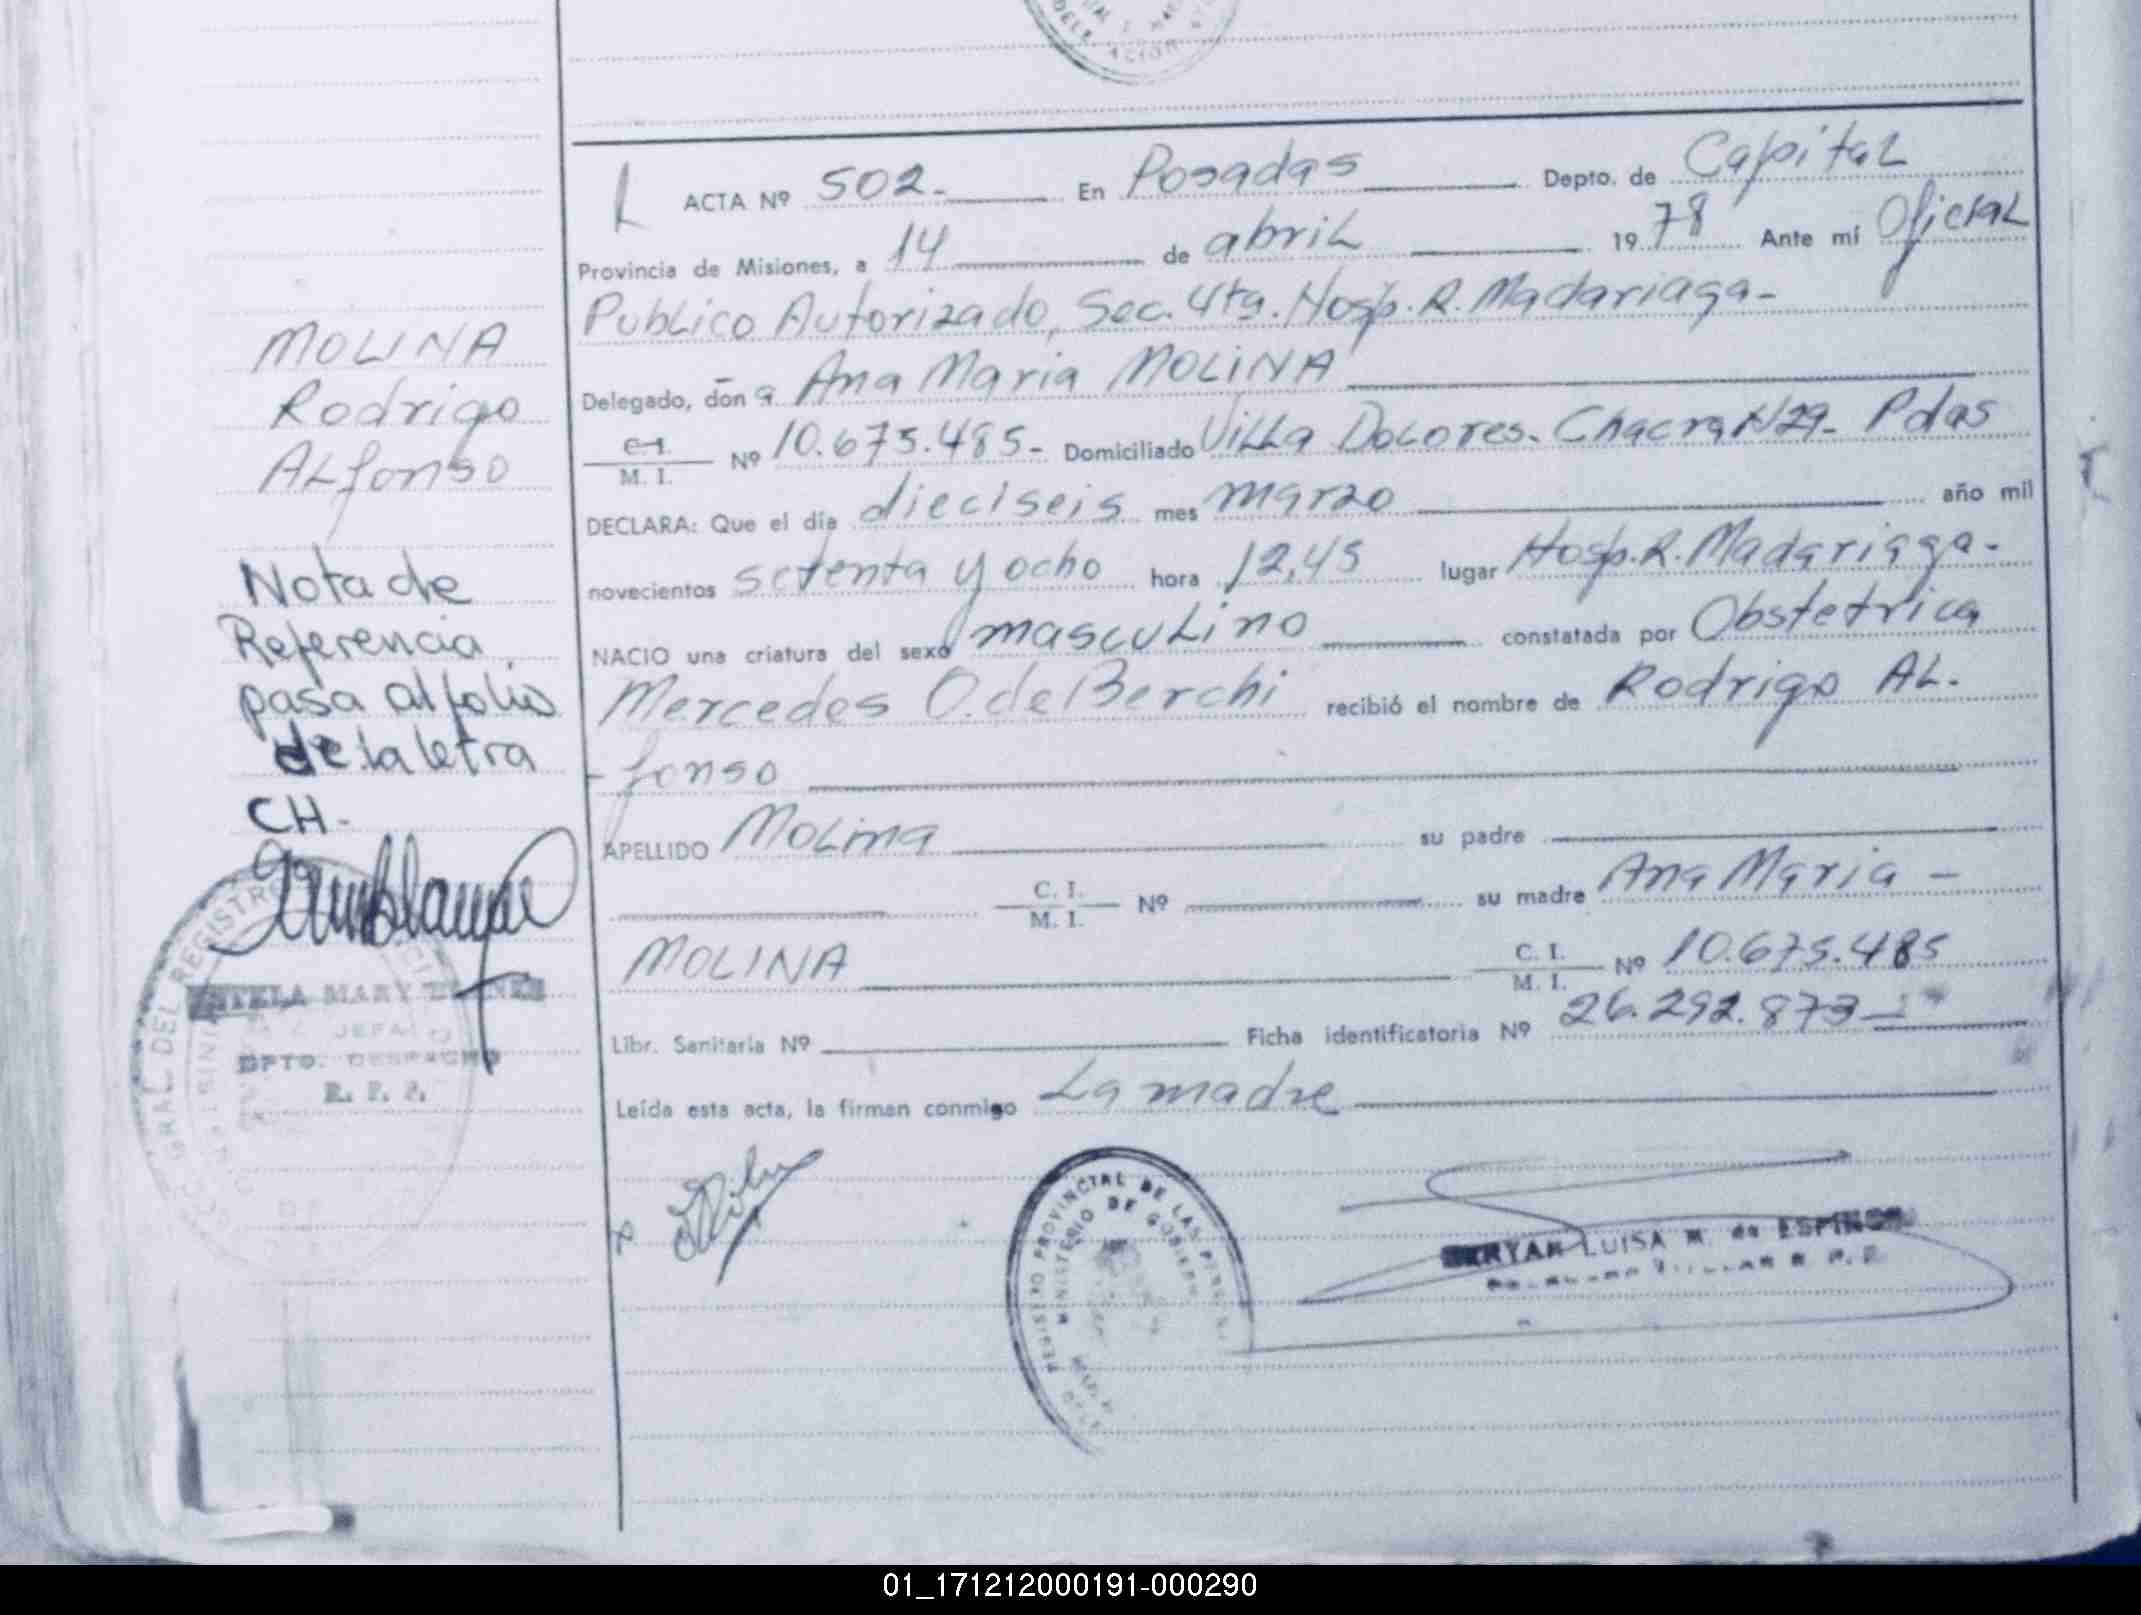 ACTA Nº 502.- En Posadas Depto. de Capital
Provincia de Misiones, a 14 de abril 1978 Ante mí Oficial
Publico Autorizado, Sec. 4ta. Hosp. R. Madariaga-
Delegado, don a Ana Maria MOLINA
C.I. M. I. Nº 10.675.485- Domiciliado Villa Dolores. Chacra Nº29- Pdas
DECLARA: Que el día dieciseis mes marzo año mil
novecientos setenta y ocho hora 12,45 lugar Hosp. R. Madariaga-
NACIO una criatura del sexo masculino constatada por Obstetrica
Mercedes O. de Berchi recibió el nombre de Rodrigo AL-
fonso
APELLIDO Molina su padre
C. I. M. I. Nº su madre Ana Maria -
MOLINA C. I. M. I. Nº 10.675.485
Libr. Sanitaria Nº Ficha identificatoria Nº 26.292.873-
Leída esta acta, la firman conmigo La madre
MOLINA
Rodrigo
ALfonso
Nota de
Referencia
pasa al folio
de la letra
CH.-
MARY
JEFA
DPTO. DESPACHO
R. P. P.
GRAL. DEL REGISTRO
REGISTRO PROVINCIAL DE LAS PERSONAS
MINISTERIO DE GOBIERNO
LUISA M. de ESPINOSA
01_171212000191-000290